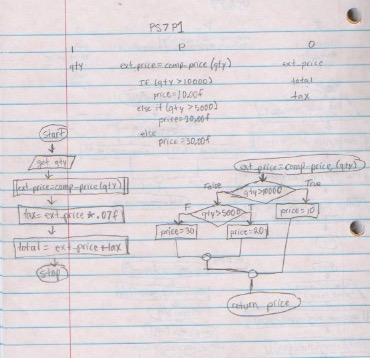 PS7P1
I P O
qty ext-price=comp-price(qty) ext-price
IF (qty>10000) total
price=10.00f tax
else if (qty>5000)
price=20.00f
else
price=30.00f
start
get qty
ext-price=comp-price(qty)
tax=ext-price*.07f
total = ext-price+tax
stop
ext-price=comp-price(qty)
False qty>10000 True
F qty>5000 price=10
price=30 price=20
return price